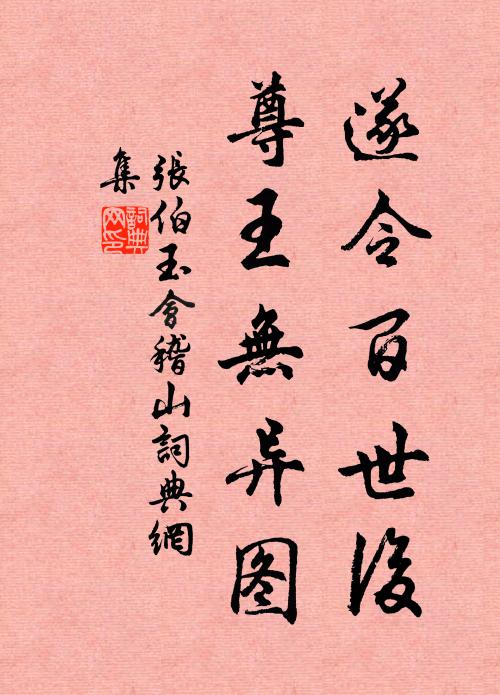 遂令百世後
尊王無异图
張伯玉會稽山詞典網
集
詞典
网印